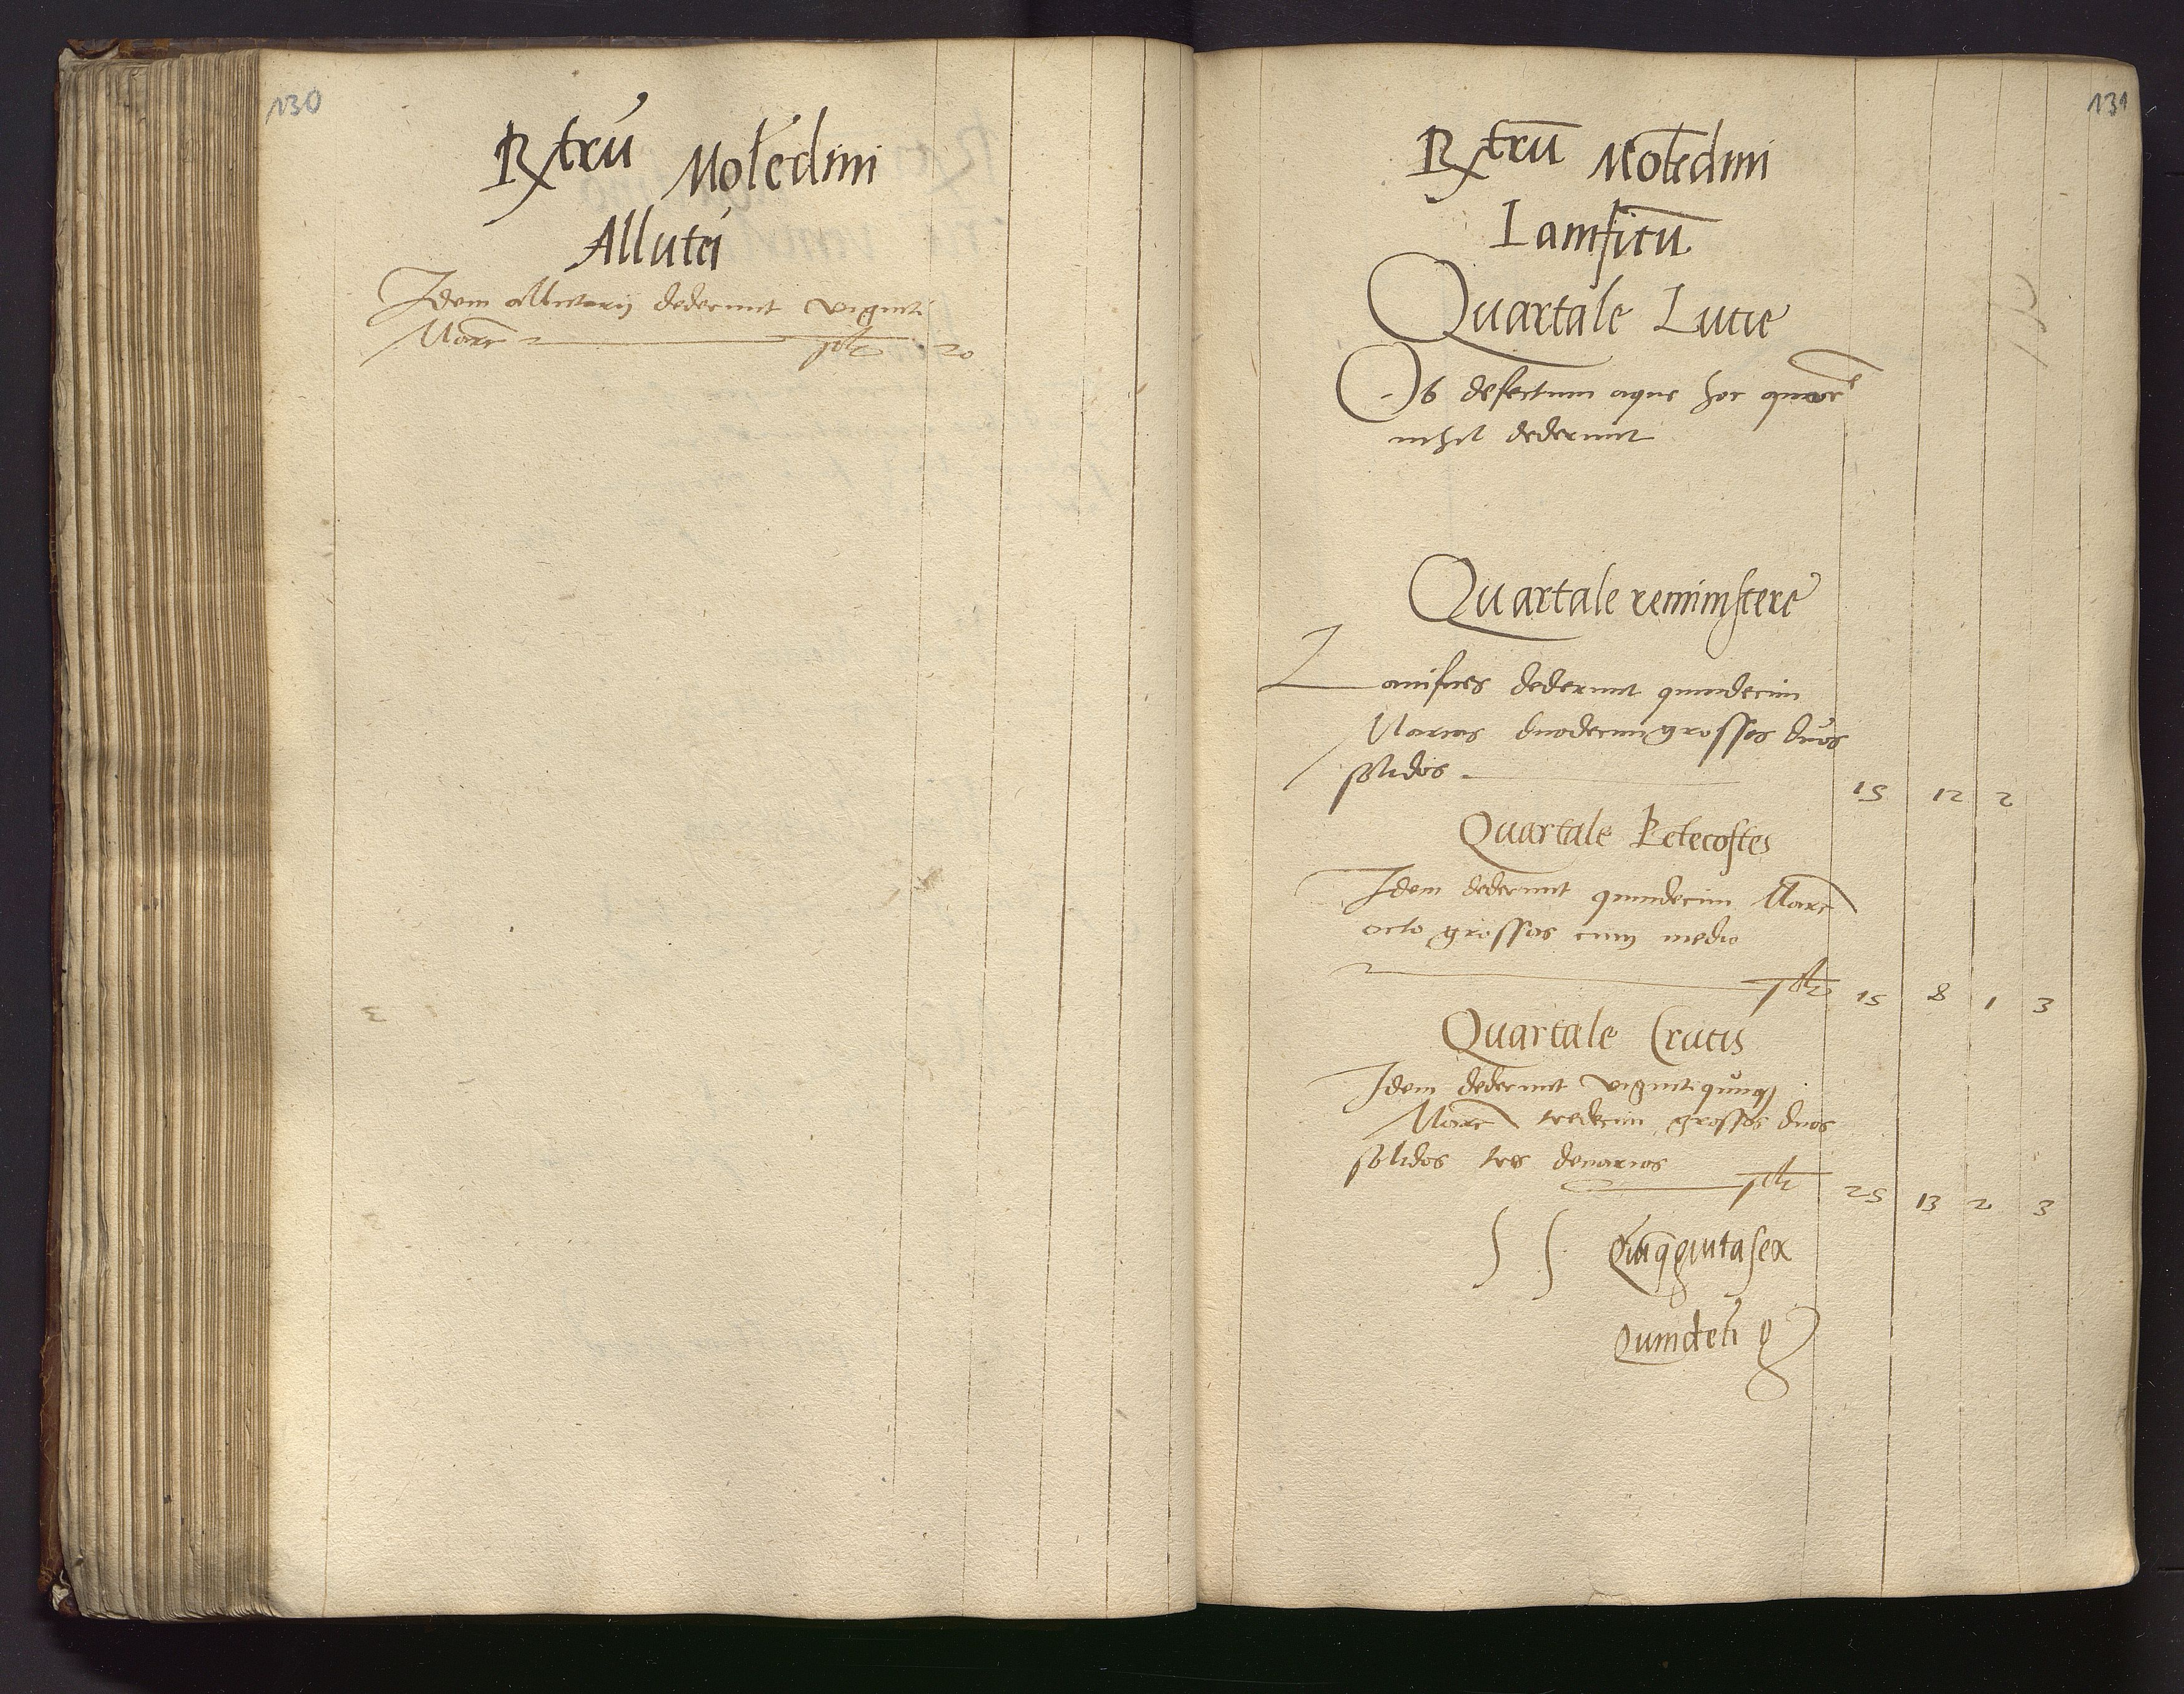 130
Rxtrū Moledini
Allutaꝝ
Idem allutarij dederunt viginti
Marc͞ pt͞z 20
131
Rxtrū Moledini
Lanificū
Quartale Lucie
Ob defectum aque hoc quart͞
nihil dederunt
Quartale reminiscere
Lanifices dederunt quindecim
Marcas duodecim grossos duos
solidos 15 12 2
Quartale Pētecostes
Idem dederunt quindecim Marc͞
octo grossos cum medio
pt͞z 15 8 1 3
Quartale Crucis
Idem dederunt viginti quinqꝫ
Marc͞ tredecim grossos duos
solidos tres denarios
pt͞z 25 13 2 3
Quīq̄ginta sex